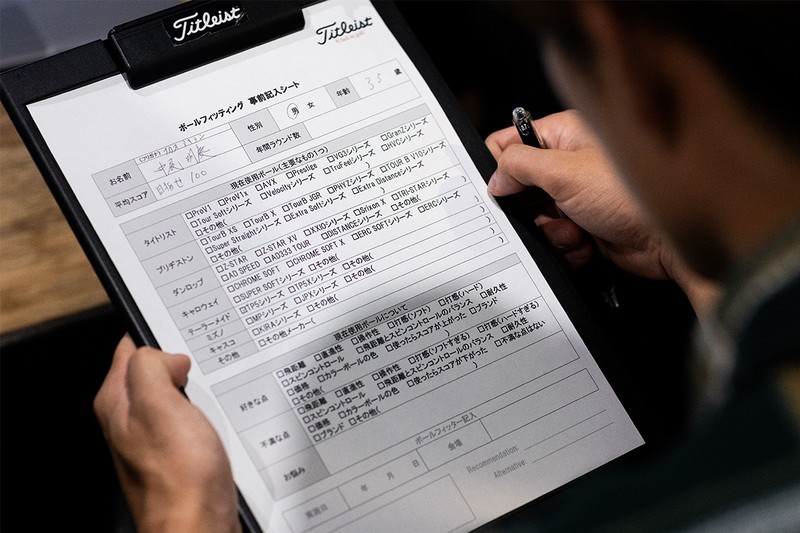 Titleist
Titleist
ボールフィッティング 事前記入シート
お名前 性別 男 女 年齢 35 歳
平均スコア 目指せ 100 年間ラウンド数
現在使用ボール(主要なもの1つ)
タイトリスト
□ProV1 □ProV1x □AVX □Prestige □VG3シリーズ □GranZシリーズ
□Tour Softシリーズ □Velocityシリーズ □TruFeelシリーズ □HVCシリーズ
□その他(
ブリヂストン
□TourB XS □TourB X □TourB JGR □PHYZシリーズ □TOUR B V10シリーズ
□Super Straightシリーズ □Extra Softシリーズ □Extra Distanceシリーズ
□その他( )
ダンロップ
□Z-STAR □Z-STAR XV □XXIOシリーズ □Srixon X □TRI-STARシリーズ
□AD SPEED □AD333 TOUR □DISTANCEシリーズ □その他( )
キャロウェイ
□CHROME SOFT □CHROME SOFT X □ERC SOFTシリーズ □ERCシリーズ
□SUPER SOFTシリーズ □その他( )
テーラーメイド □TP5シリーズ □TP5Xシリーズ □その他( )
ミズノ □MPシリーズ □JPXシリーズ □その他( )
キャスコ □KIRAシリーズ □その他(
その他 □その他メーカー( )
現在使用ボールについて
好きな点
□飛距離 □直進性 □操作性 □打感(ソフト) □打感(ハード)
□スピンコントロール □飛距離とスピンコントロールのバランス □耐久性
□価格 □カラーボールの色 □使ったらスコアが上がった □ブランド
□その他(
不満な点
□飛距離 □直進性 □操作性 □打感(ソフトすぎる) □打感(ハードすぎる)
□スピンコントロール □飛距離とスピンコントロールのバランス □耐久性
□価格 □カラーボールの色 □使ったらスコアが下がった □不満な点はない
□ブランド □その他( )
お悩み
ボールフィッター記入
実施日 年 月 日 会場
Recommendation:
Alternative: